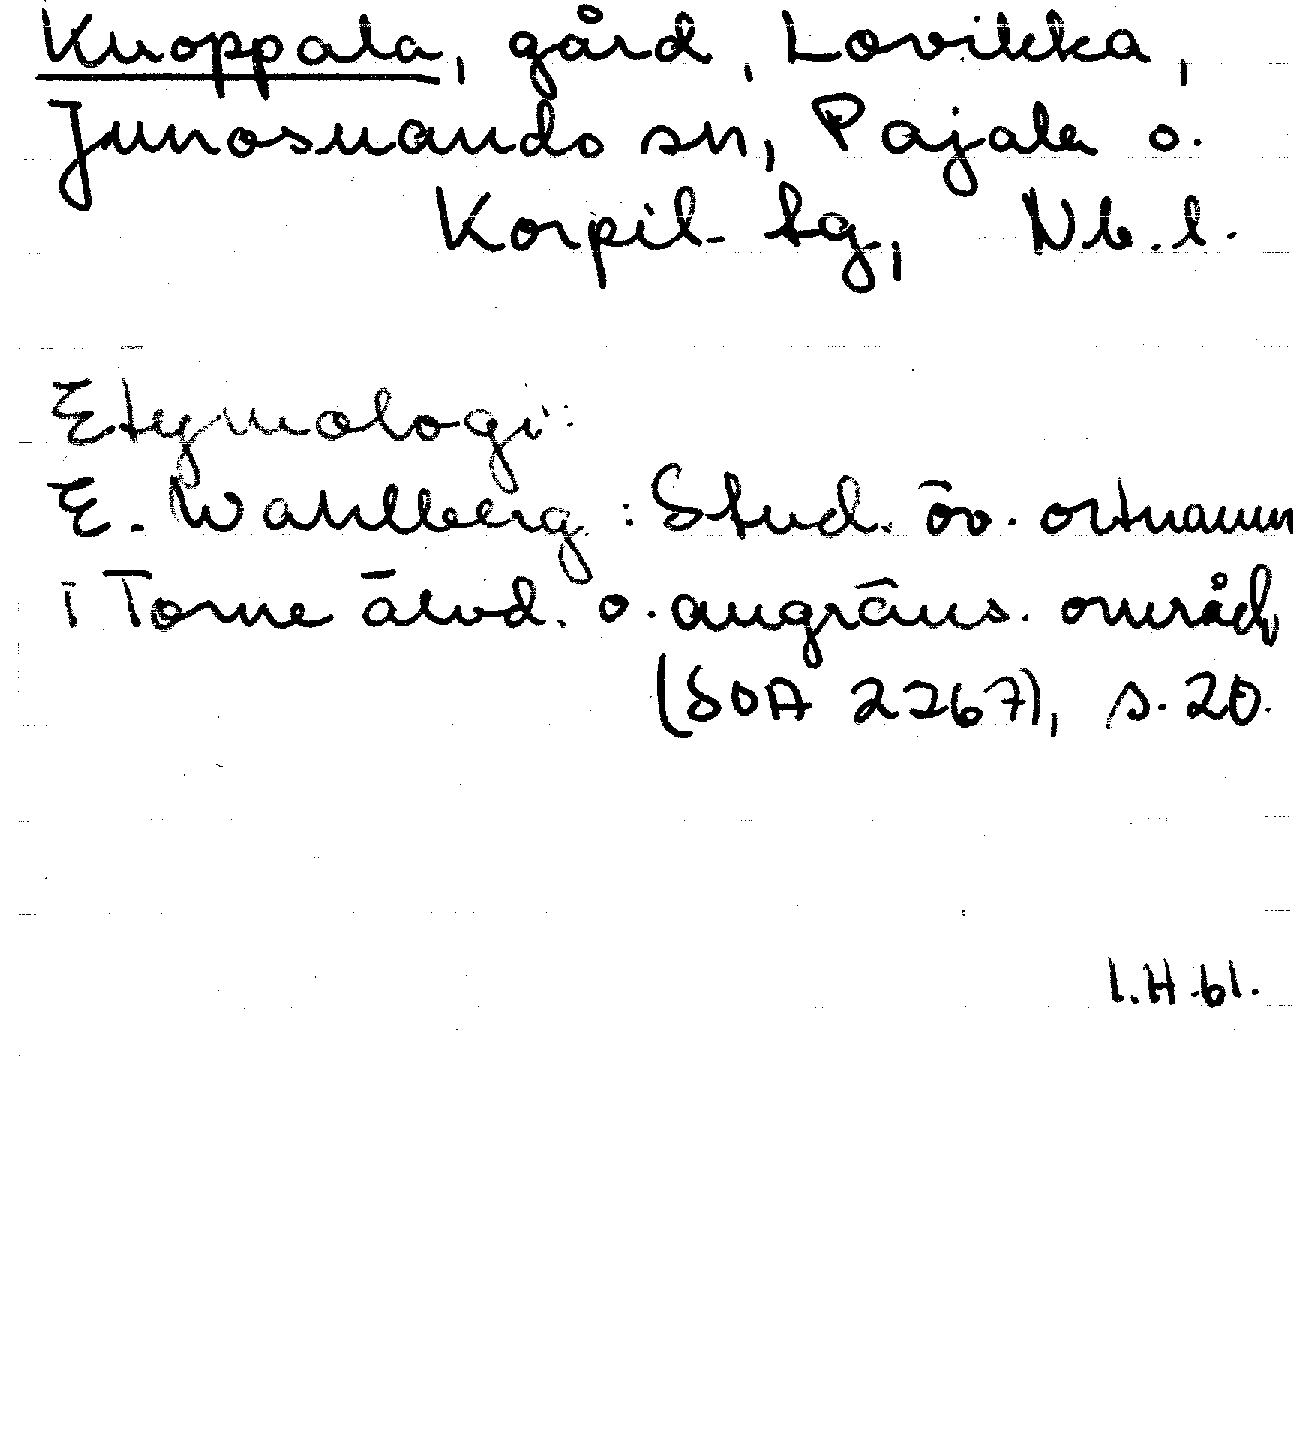 Kuoppala, gård, Lovikka,
Junosuando sn, Pajala o.
Korpil. tg, Nb.l.
Etymologi:
E. Wahlberg: Stud. öv. ortnamn
i Torne älvd. o. angräns. områd,
(SOA 2267), s. 20.
I.H.61.